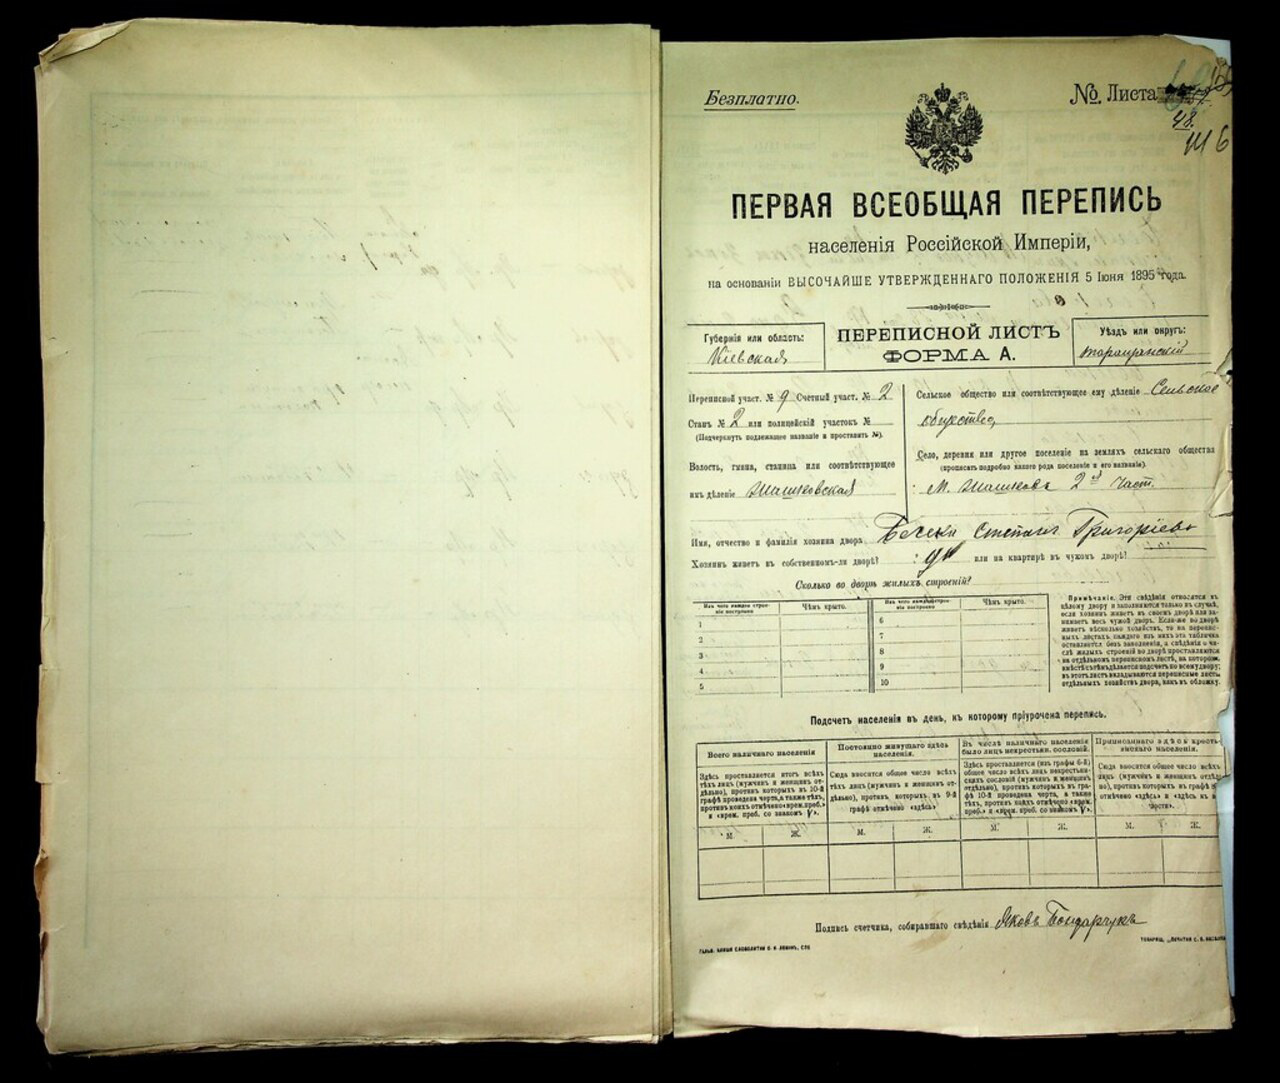 Безплатно.
№. Листа
48.
ПЕРВАЯ ВСЕОБЩАЯ ПЕРЕПИСЬ
населенія Россійской Имперіи,
на основаніи ВЫСОЧАЙШЕ УТВЕРЖДЕННАГО ПОЛОЖЕНІЯ 5 Іюня 1895 года.
Губернія или область:
Кіевская
ПЕРЕПИСНОЙ ЛИСТЪ
ФОРМА А.
Уѣздъ или округъ:
Таращанскій
Переписной участ. № 9 Счетный участ. № 2
Станъ № 2 или полицейскій участокъ №
(Подчеркнуть подлежащее названіе и проставить №).
Волость, гмина, станица или соотвѣтствующее
имъ дѣленіе
Сельское общество или соотвѣтствующее ему дѣленіе Сельское
общество
Село, деревня или другое поселеніе на земляхъ сельскаго общества
(прописать подробно какого рода поселеніе и его названіе).
М. 2й Част.
Имя, отчество и фамилія хозяина двора Григоріевъ
Хозяинъ живетъ въ собственномъ-ли дворѣ? да или на квартирѣ въ чужомъ дворѣ?
Сколько во дворѣ жилыхъ строеній?
Изъ чего каждое строеніе построено
Чѣмъ крыто.
Изъ чего каждое строеніе построено
Чѣмъ крыто.
1
2
3
4
5
6
7
8
9
10
Примѣчаніе. Эти свѣдѣнія относятся къ
цѣлому двору и заполняются только въ случаѣ,
если хозяинъ живетъ въ своемъ дворѣ или занимаетъ
весь чужой дворъ. Если-же во дворѣ
живетъ нѣсколько хозяйствъ, то на переписныхъ
листахъ каждаго изъ нихъ эта табличка
оставляется безъ заполненія, а свѣдѣнія о числѣ
жилыхъ строеній во дворѣ проставляются
на отдѣльномъ переписномъ листѣ, на которомъ
вмѣстѣ съ тѣмъ дѣлается подсчетъ по всему двору;
въ этотъ листъ вкладываются переписные листы
отдѣльныхъ хозяйствъ двора, какъ въ обложку.
Подсчетъ населенія въ день, къ которому пріурочена перепись.
Всего наличнаго населенія
Здѣсь проставляется итогъ всѣхъ
тѣхъ лицъ (мужчинъ и женщинъ отдѣльно),
противъ которыхъ въ 10-й
графѣ проведена черта, а также тѣхъ,
противъ коихъ отмѣчено «врем. преб.»
и «врем. преб. со знакомъ V».
Постоянно живущаго здѣсь
населенія.
Сюда вносится общее число всѣхъ
тѣхъ лицъ (мужчинъ и женщинъ отдѣльно),
противъ которыхъ въ 9-й
графѣ отмѣчено «здѣсь»
Въ числѣ наличнаго населенія
было лицъ некрестьян. сословій.
Здѣсь проставляется (изъ графы 6-й)
общее число всѣхъ лицъ некрестьянскихъ
сословій (мужчинъ и женщинъ
отдѣльно), противъ которыхъ въ графѣ
10-й проведена черта, а также
тѣхъ, противъ коихъ отмѣчено «врем.
преб.» и «врем. преб. со знакомъ V».
Приписаннаго здѣсь крестьянскаго
населенія.
Сюда вносится общее число всѣхъ
лицъ (мужчинъ и женщинъ отдѣльно),
противъ которыхъ въ графѣ
отмѣчено «здѣсь» и «здѣсь въ
М.
Ж.
М.
Ж.
М.
Ж.
М.
Ж.
Подпись счетчика, собиравшаго свѣдѣнія Яковъ Бондарчукъ